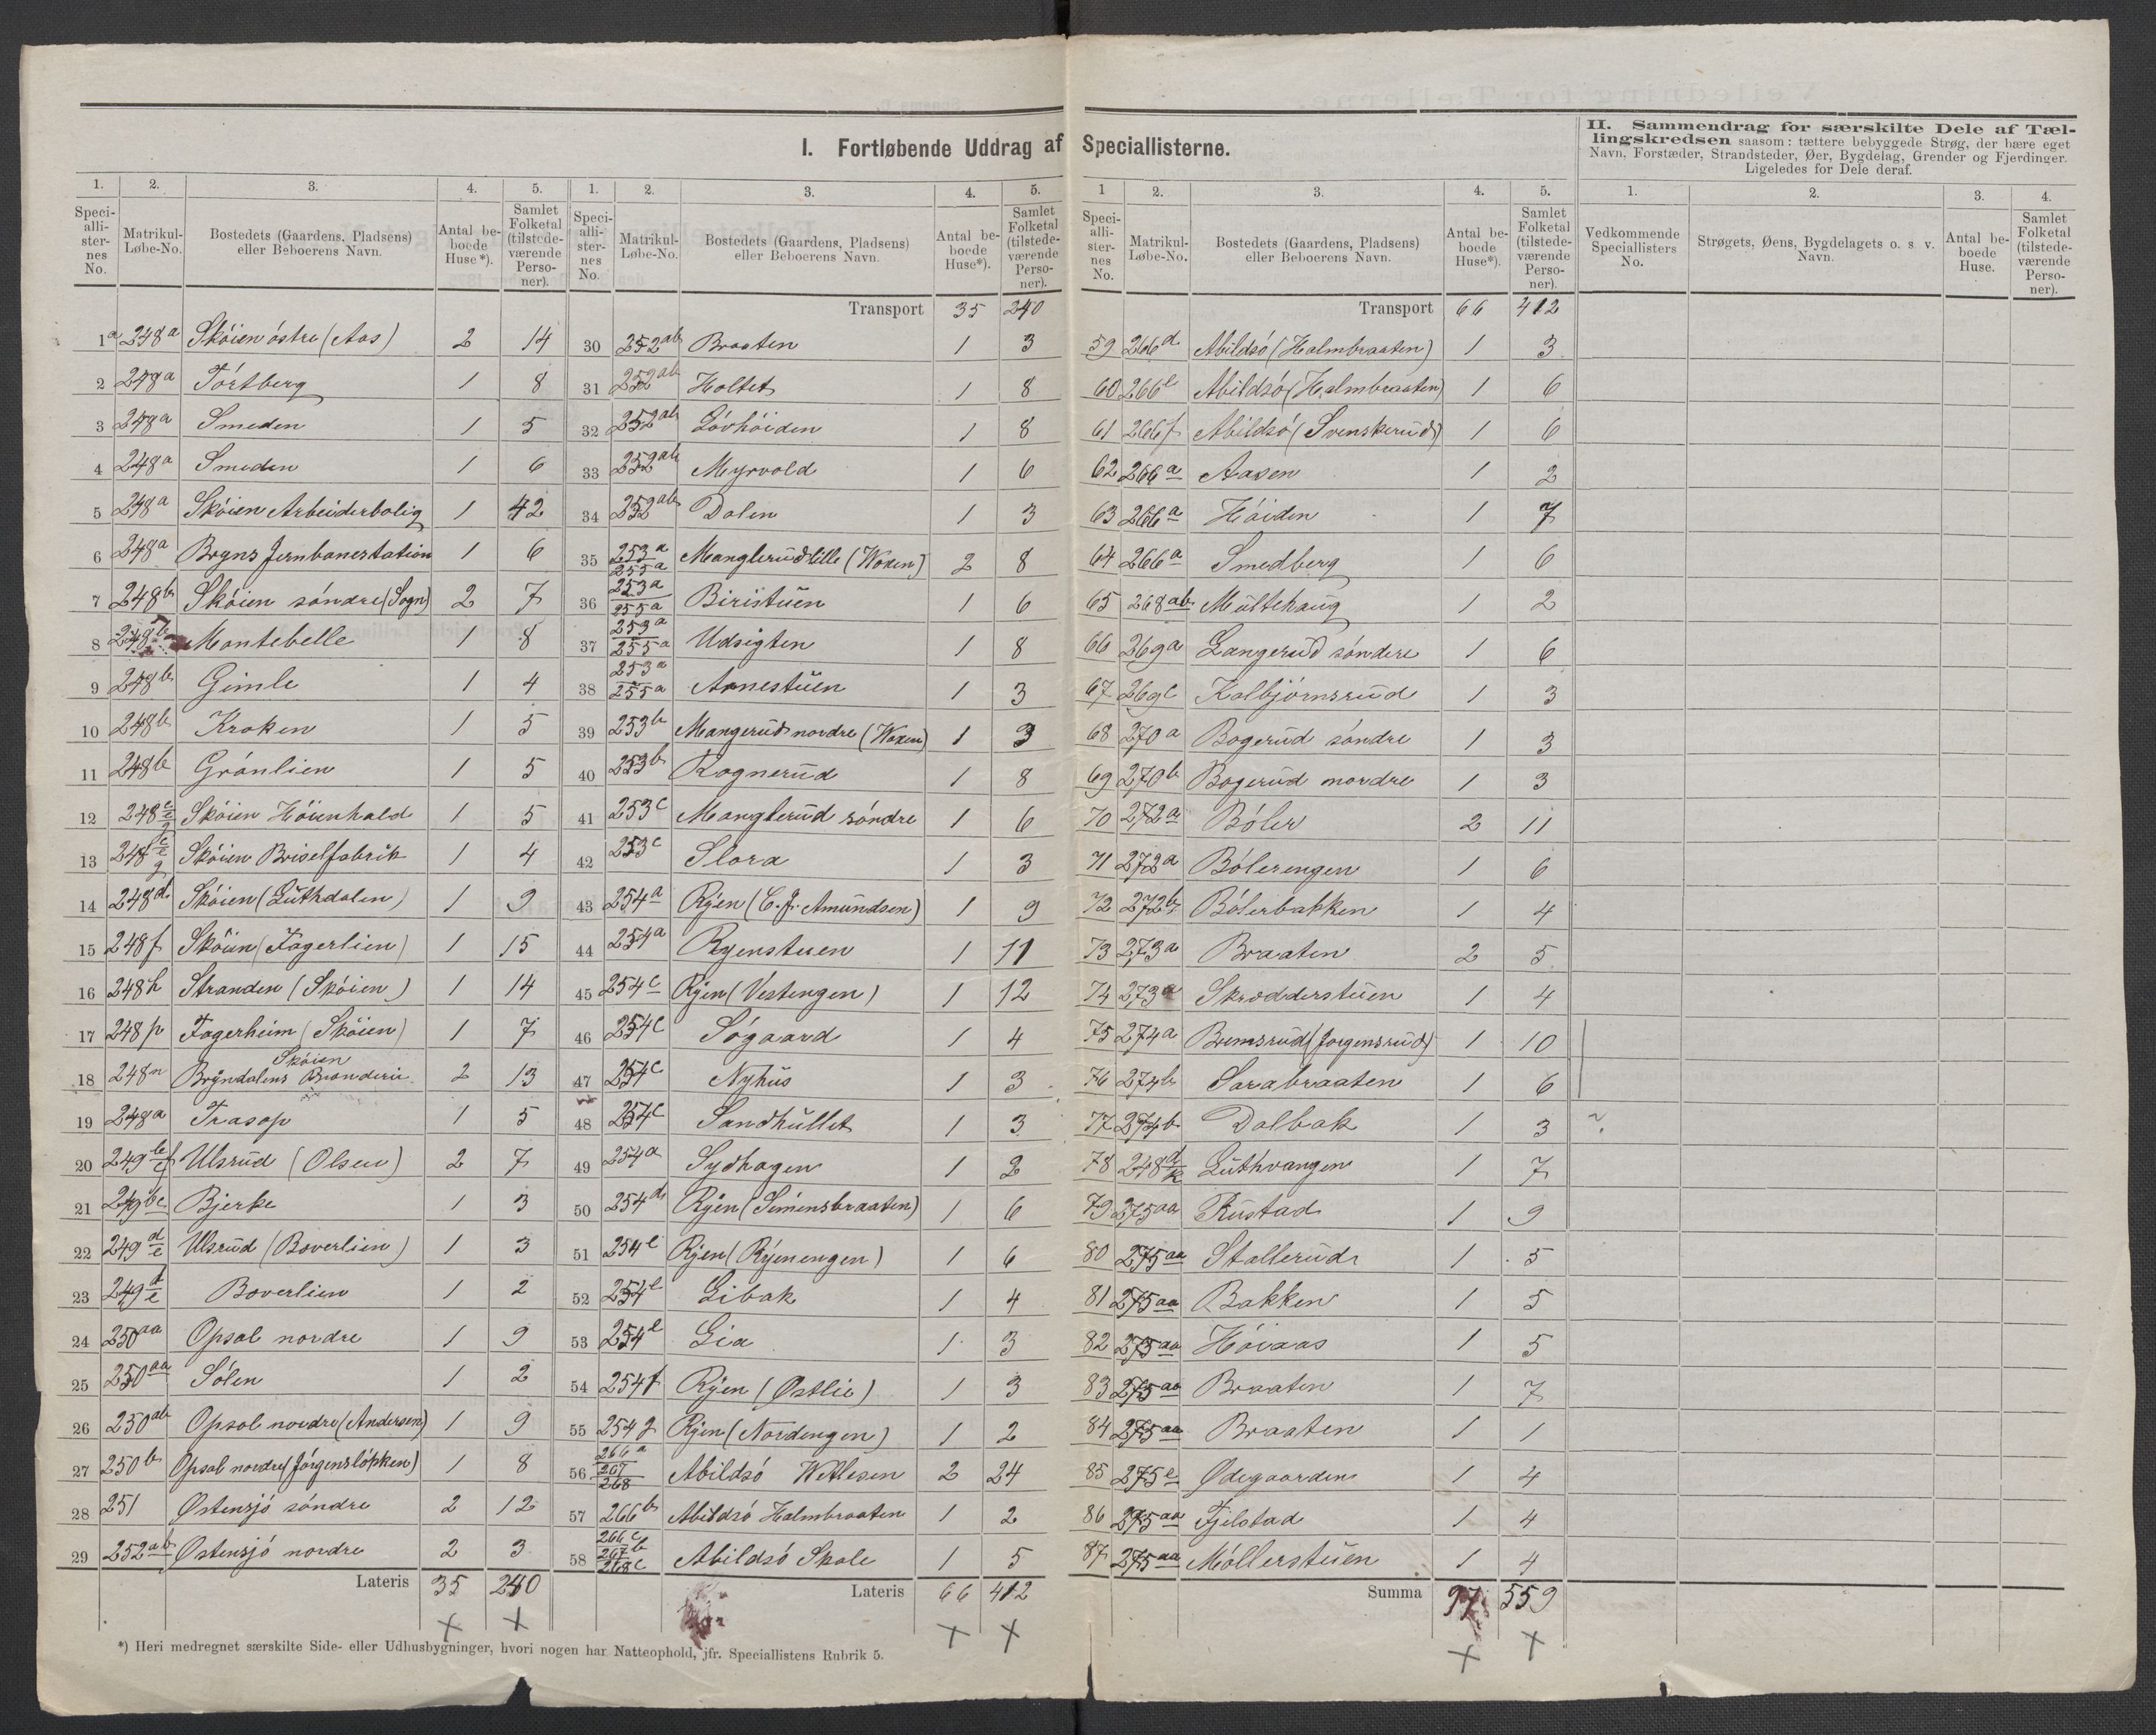 I. Fortløbende Uddrag af Speciallisterne.
II. Sammendrag for særskilte Dele af Tæl-
lingskredsen saasom: tættere bebyggede Strøg, der bære eget
Navn, Forstæder, Strandsteder, Øer, Bygdelag, Grender og Fjerdinger.
Ligeledes for Dele deraf.
1. 2. 3. 4. 5.
Speci-alli-ster-nes No. Matrikul-Løbe-No. Bostedets (Gaardens, Pladsens) eller Beboerens Navn. Antal be-boede Huse*). Samlet Folketal (tilstede-værende Perso-ner).
1a 248a Skøien østre (Aas) 2 14
2 248a Tørtberg 1 8
3 248a Smeden 1 5
4 248a Smeden 1 6
5 248a Skøien Arbeiderbolig 1 42
6 248a Bryns Jernbanestation 1 6
7 248b Skøien søndre (Sogn) 2 7
8 248b Montebelle 1 8
9 248b Gimle 1 4
10 248b Kroken 1 5
11 248b Grønlien 1 5
12 248c/e/g Skøien Høienhald 1 5
13 248c/e/g Skøien Briselfabrik 1 4
14 248d Skøien (Luthdalen) 1 9
15 248f Skøien (Fagerlien) 1 15
16 248h Stranden (Skøien) 1 14
17 248p Fagerheim (Skøien) 1 7
Skøien
18 248m Bryndalens Brænderie 2 13
19 248a Trasop 1 5
20 249b/c f Ulsrud (Olsen) 2 7
21 249bc Bjerke 1 3
22 249d/e Ulsrud (Boverlien) 1 3
23 249d/e Boverlien 1 2
24 250aa Opsal nordre 1 9
25 250aa Sølen 1 2
26 250ab Opsal nordre (Andersen) 1 9
27 250b Opsal nordre (Jørgensløkken) 1 8
28 251 Østensjø søndre 2 12
29 252ab Østensjø nordre 2 3
Lateris 35 240
1. 2. 3. 4. 5.
Speci-alli-ster-nes No. Matrikul-Løbe-No. Bostedets (Gaardens, Pladsens) eller Beboerens Navn. Antal be-boede Huse*). Samlet Folketal (tilstede-værende Perso-ner).
Transport 35 240
30 252ab Braaten 1 3
31 252ab Holtet 1 8
32 252ab Løvhøiden 1 8
33 252ab Myrvold 1 6
34 252ab Dalen 1 3
35 253a/255a Manglerud lille (Woxen) 2 8
36 253a/255a Biristuen 1 6
37 253a/255a Udsigten 1 8
38 253a/255a Annestuen 1 3
39 253b Mangerud nordre (Woxen) 1 3
40 253b Rognerud 1 8
41 253c Manglerud søndre 1 6
42 253c Slora 1 3
43 254a Ryen (C. J. Amundsen) 1 9
44 254a Ryenstuen 1 11
45 254c Ryen (Vestengen) 1 12
46 254c Søgaard 1 4
47 254c Nyhus 1 3
48 254c Sandhullet 1 3
49 254a Sydhagen 1 2
50 254d Ryen (Simensbraaten) 1 6
51 254e Ryen (Ryenengen) 1 6
52 254e Libak 1 4
53 254e Lia 1 3
54 254f Ryen (Østlie) 1 3
55 254g Ryen (Nordengen) 1 2
56 266a/267/268 Abildsø Wetlesen 2 24
57 266b Abildsø Halmbraaten 1 2
58 266c/267b/268c Abildsø Skole 1 5
Lateris 66 412
1 2. 3. 4. 5.
Speci-alli-ster-nes No. Matrikul-Løbe-No. Bostedets (Gaardens, Pladsens) eller Beboerens Navn. Antal be-boede Huse*). Samlet Folketal (tilstede-værende Perso-ner).
Transport 66 412
59 266d Abildsø (Halmbraaten) 1 3
60 266e Abildsø (Halmbraaten) 1 6
61 266f Abildsø (Svenskerud) 1 6
62 266a Aasen 1 2
63 266a Høiden 1 7
64 266a Smedberg 1 6
65 268ab Multehaug 1 2
66 269a Langerud søndre 1 6
67 269c Kolbjørnsrud 1 3
68 270a Bogerud søndre 1 3
69 270b Bogerud nordre 1 3
70 272a Bøler 2 11
71 272a Bølerengen 1 6
72 272b Bølerbakken 1 4
73 273a Braaten 2 5
74 273a Skrædderstuen 1 4
75 274a Bremsrud (Jorgensrud) 1 10
76 274b Sarabraaten 1 6
77 274b Dalbak 1 3
78 248d/k Luthvangen 1 7
79 275aa Rustad 1 9
80 275aa Stallerud 1 5
81 275aa Bakken 1 5
82 275aa Høiaas 1 5
83 275aa Braaten 1 7
84 275aa Braaten 1 1
85 275e Ødegaarden 1 4
86 275aa Fjelstad 1 4
87 275aa Møllerstuen 1 4
Summa 97 559
1. 2. 3. 4.
Vedkommende Speciallisters No. Strøgets, Øens, Bygdelagets o. s. v. Navn. Antal be-boede Huse. Samlet Folketal (tilstede-værende Perso-ner).
*) Heri medregnet særskilte Side- eller Udhusbygninger, hvori nogen har Natteophold, jfr. Speciallistens Rubrik 5.